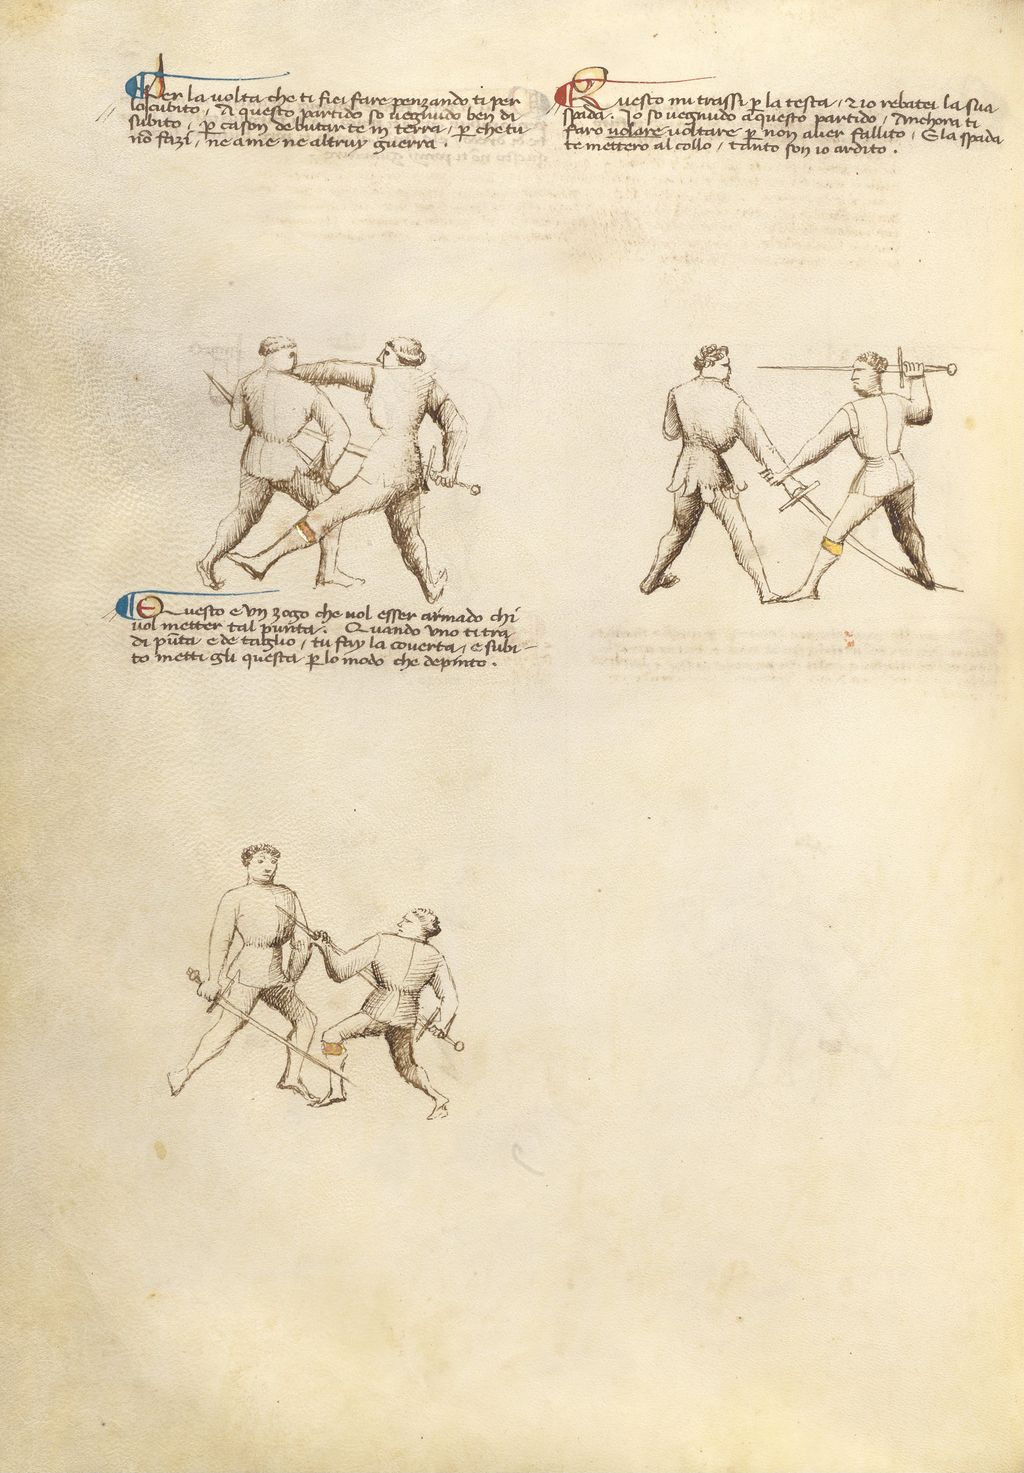 Per la volta che ti fici fare penzando ti per
lo cubito, A questo partido so vegnudo ben di
subito, p̄ cason de butarte in terra, p̄ che tu
nō fazi, ne a me ne altruy guerra.
Questo mi trassi p̄ la testa, ⁊ io rebatei la sua
spada. Io so vegnudo a questo partido, Anchora ti
faro volare voltare p̄ non aver fallito, E la spada
te mettero al collo, tanto son io ardito.
Questo e un zogo che vol esser armado chi
vol metter tal punta. Quando uno ti tra
di pūta e de taglio, tu fay la coverta, e subi-
to metti gli questa p̄ lo modo che depinto.